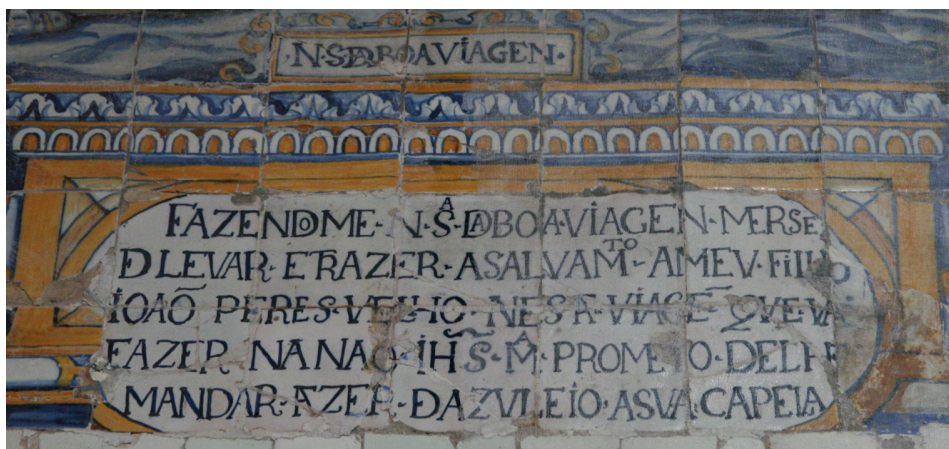 ·N·S·DABOAVIAGEN·
FAZENDOME·N·Sᴬ·DABOA·VIAGEN·MERSE
DLEVAR·ETRAZER·ASALVAMᵀᴼ·AMEV·FILHO
IOAÕ PERES·VELHO·NESA·VIAGE͂·QVE·VAI
FAZER NA NAO·IHS·Mᴬ·PROMETO·DELHE
MANDAR·FAZER·DAZVLEIO·ASVA·CAPELA